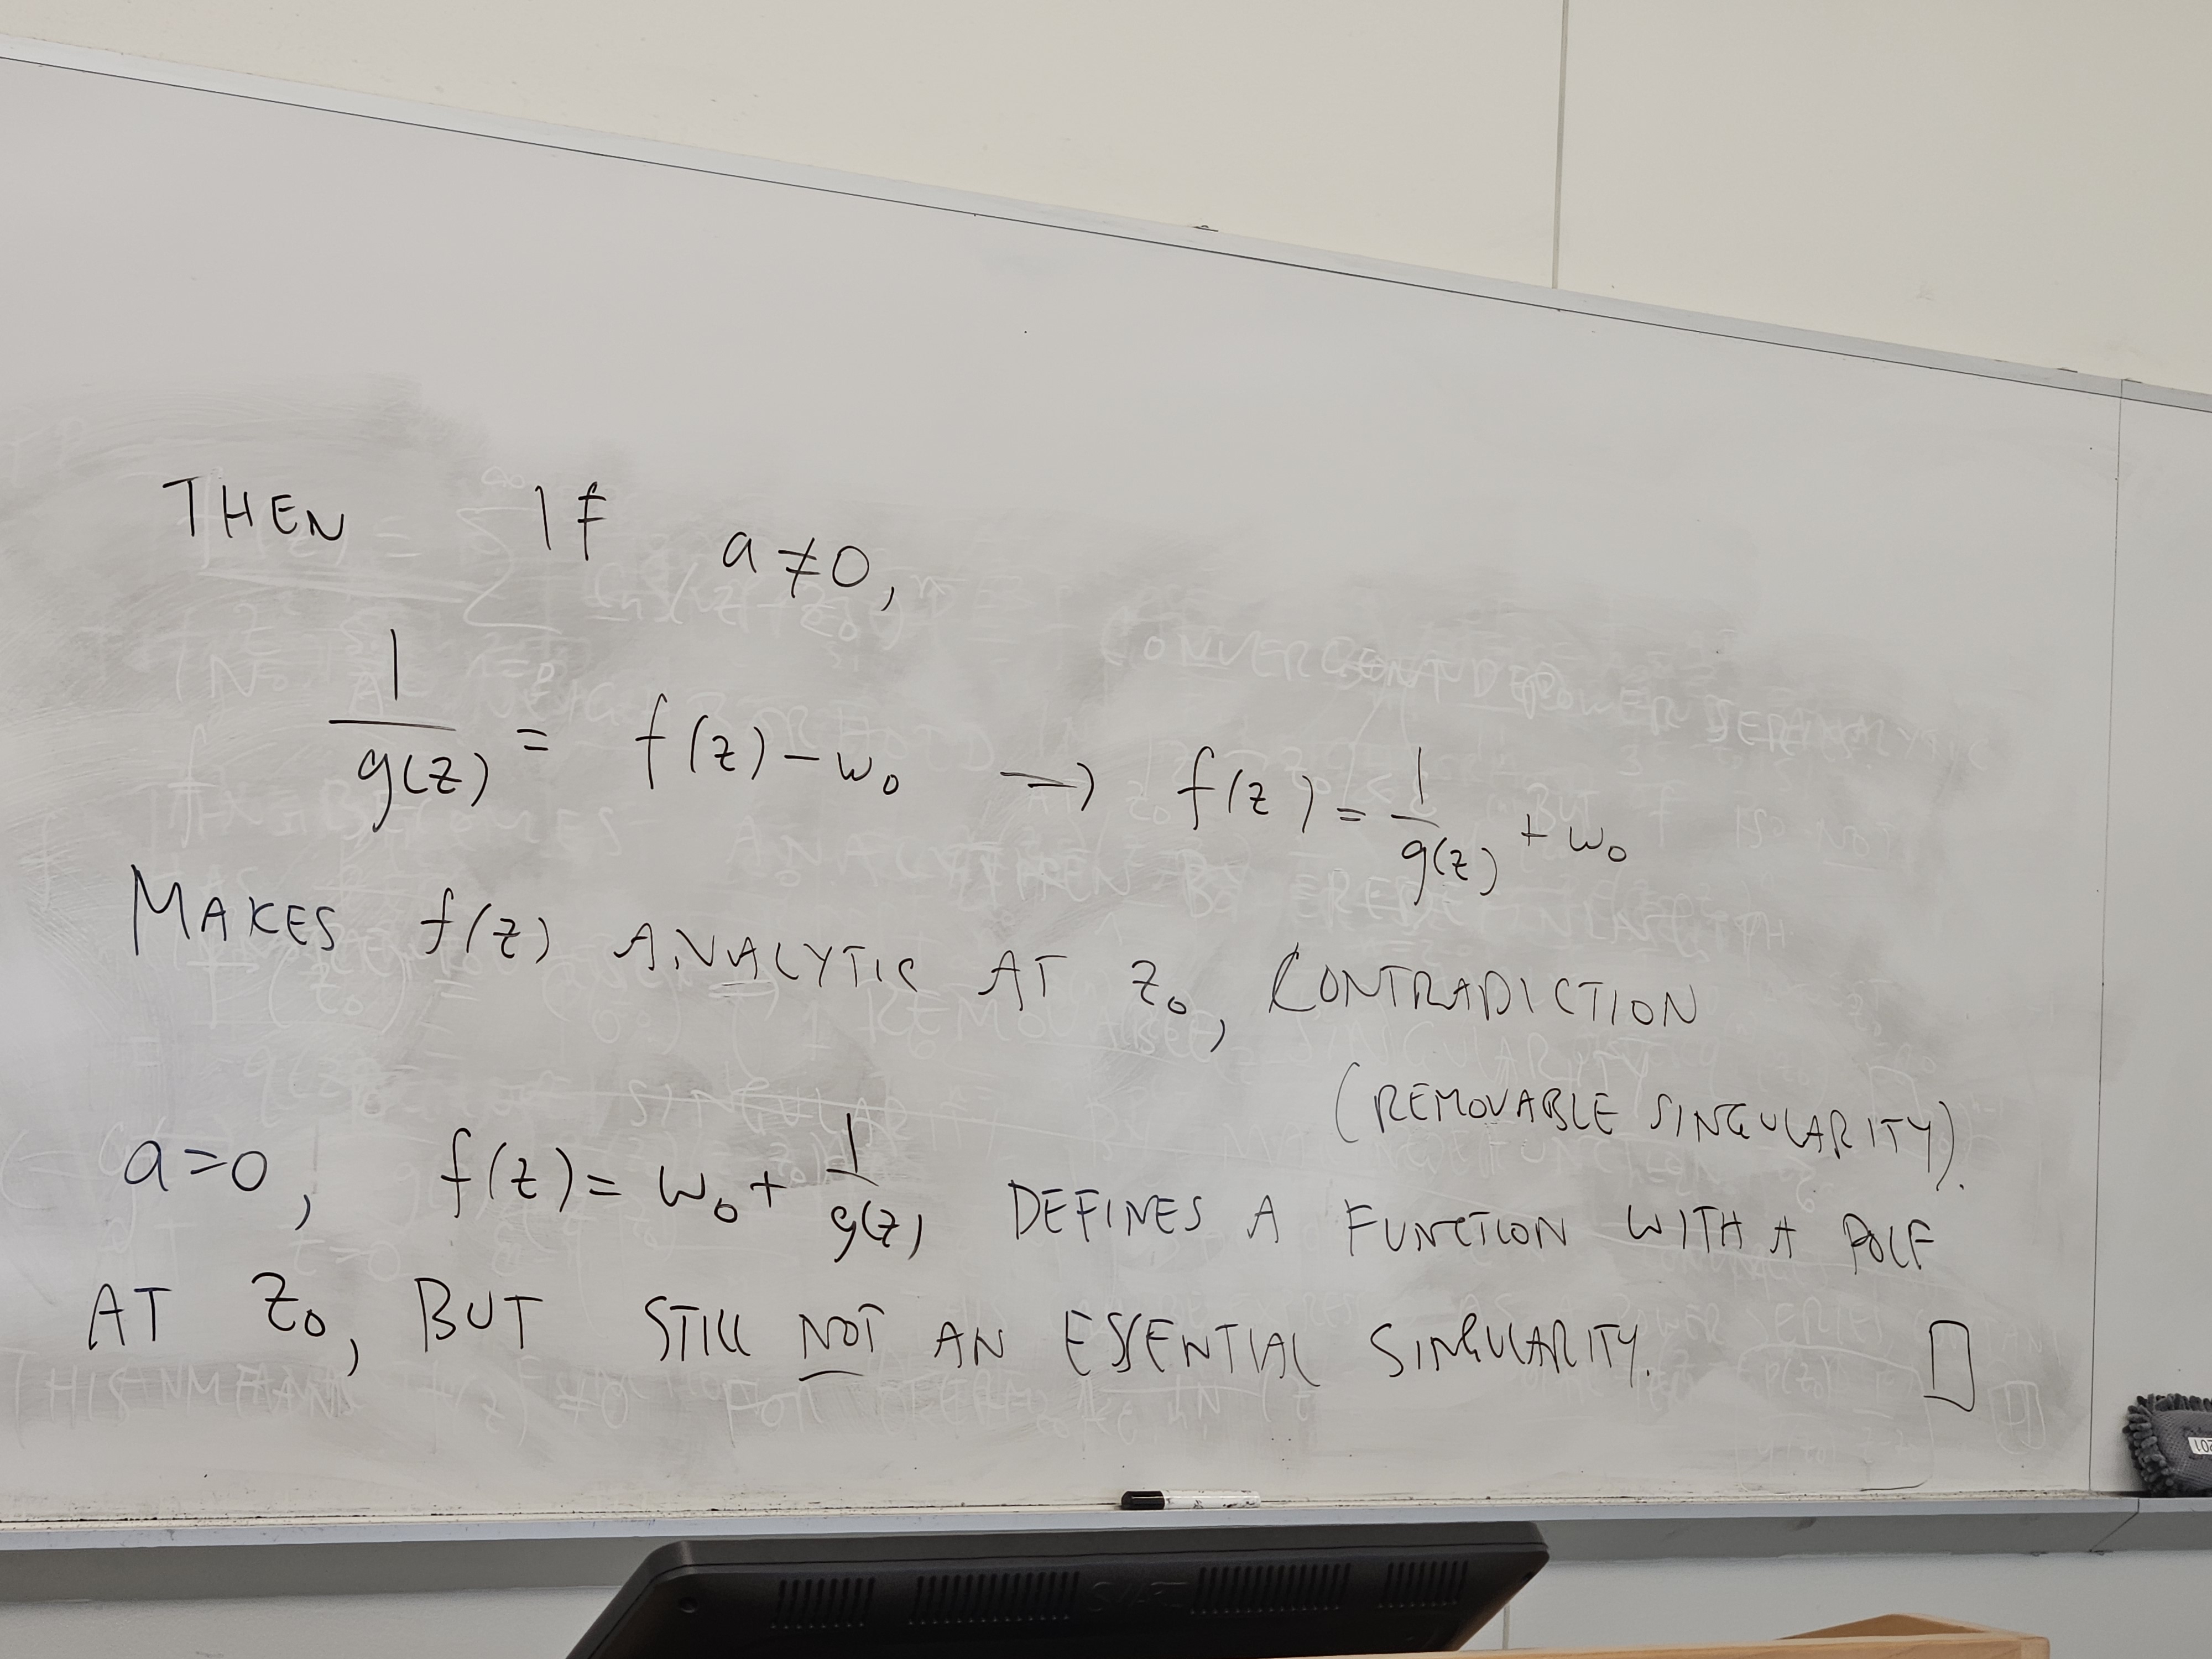 THEN IF a≠0,
1/g(z) = f(z) - w₀ → f(z) = 1/g(z) + w₀
MAKES f(z) ANALYTIC AT z₀, CONTRADICTION
(REMOVABLE SINGULARITY).
a=0, f(z) = w₀ + 1/g(z) DEFINES A FUNCTION WITH A POLE
AT z₀, BUT STILL NOT AN ESSENTIAL SINGULARITY. □